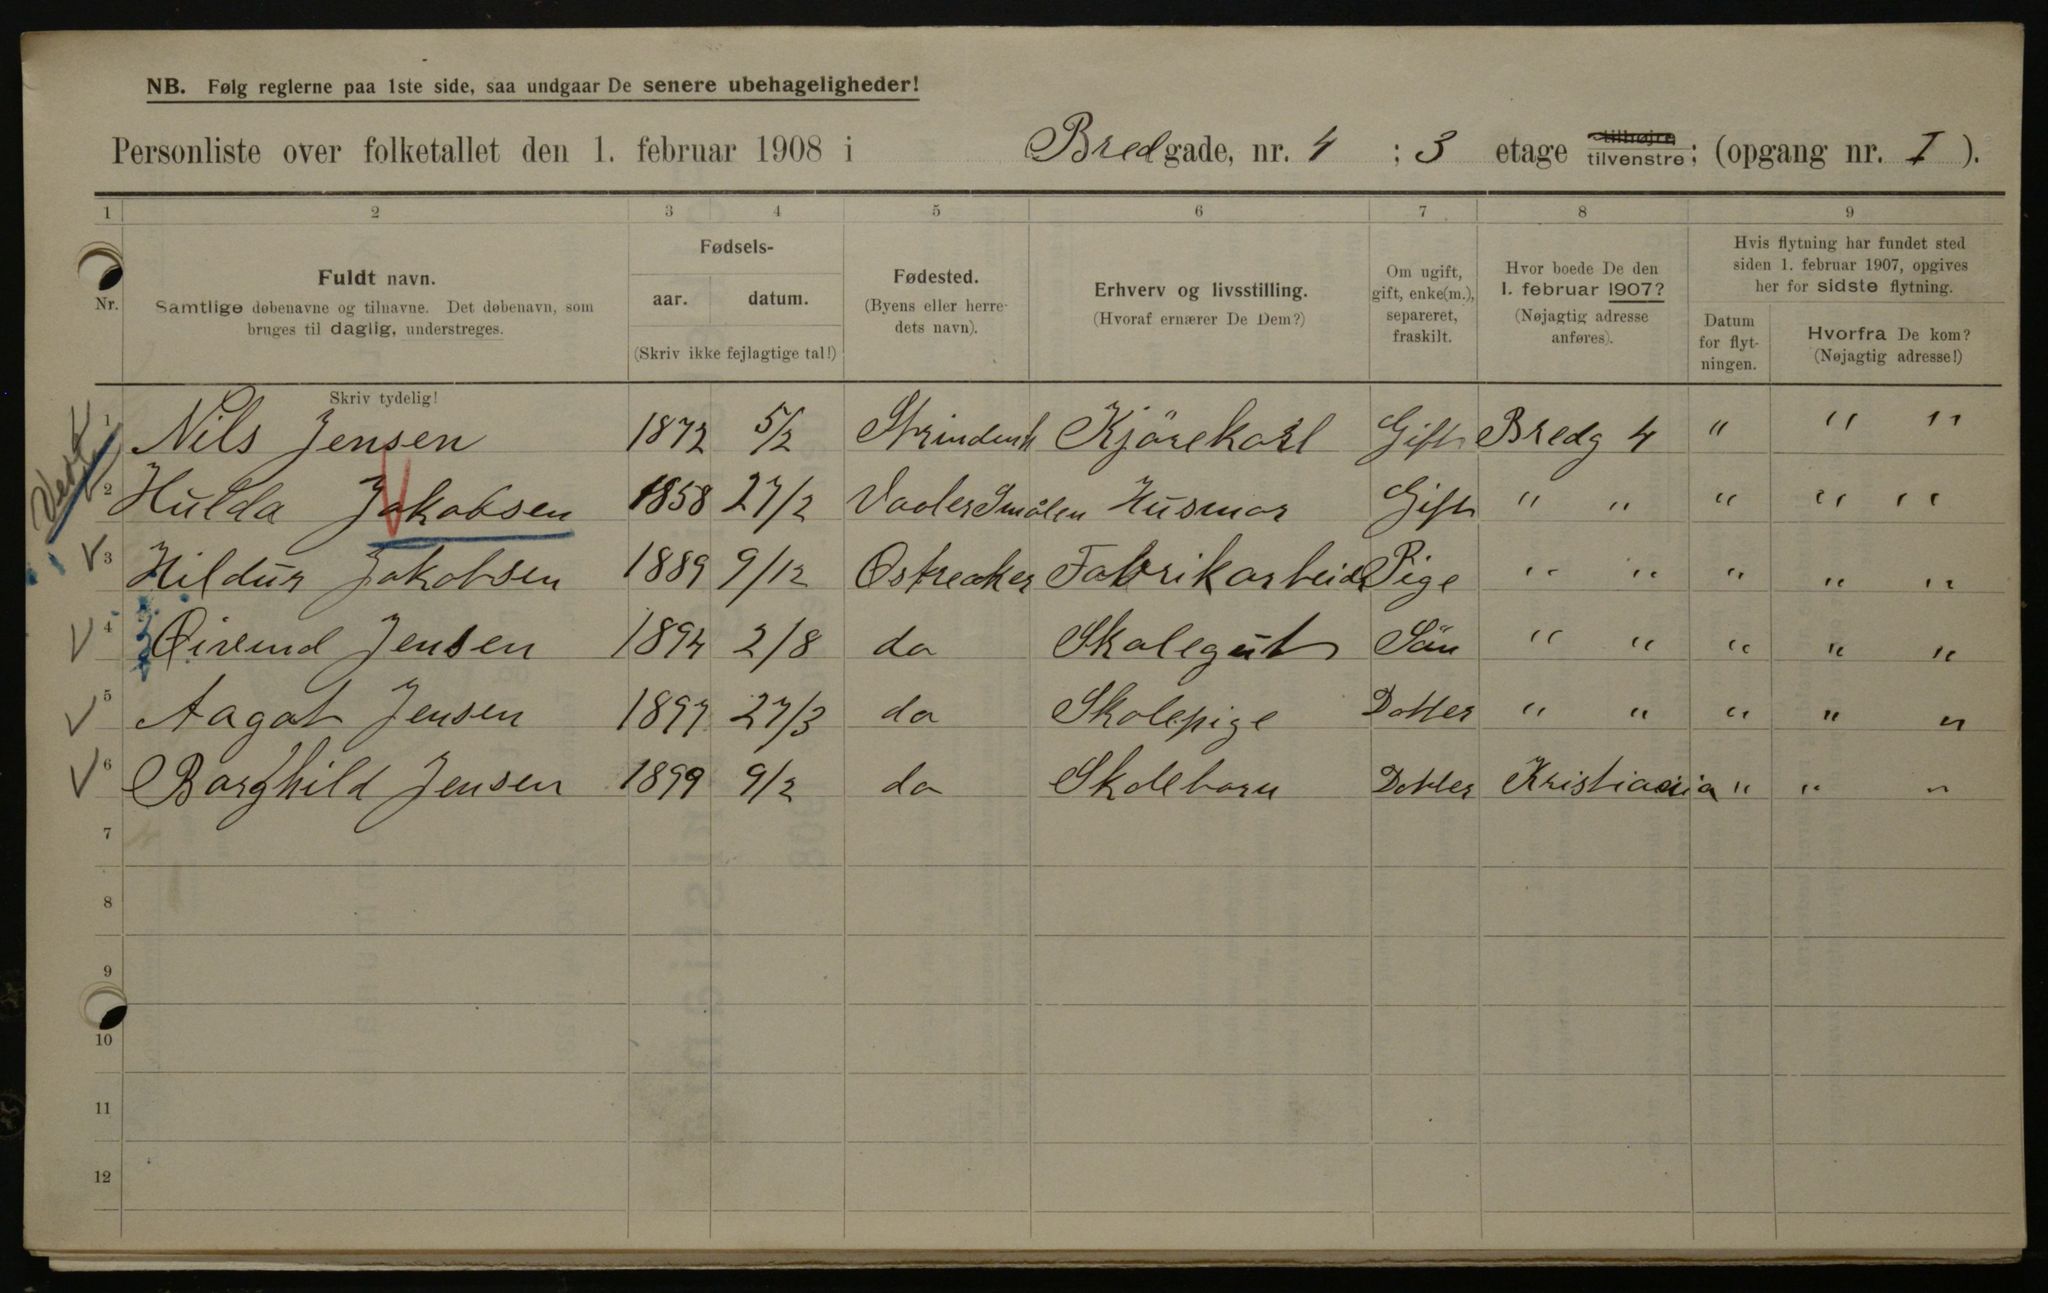 NB. Følg reglerne paa 1ste side, saa undgaar De senere ubehageligheder!
Personliste over folketallet den 1. februar 1908 i Bredgade, nr. 4 ; 3 etage tilhøjre, tilvenstre; (opgang nr. I ).
1 2 3 4 5 6 7 8 9
Nr.
Fuldt navn.
Samtlige døbenavne og tilnavne. Det døbenavn, som
bruges til daglig, understreges.
Fødsels-
aar. datum.
(Skriv ikke fejlagtige tal!)
Fødested.
(Byens eller herre-
dets navn).
Erhverv og livsstilling.
(Hvoraf ernærer De Dem?)
Om ugift,
gift, enke(m.),
separeret,
fraskilt.
Hvor boede De den
1. februar 1907?
(Nøjagtig adresse
anføres).
Hvis flytning har fundet sted
siden 1. februar 1907, opgives
her for sidste flytning.
Datum
for flyt-
ningen.
Hvorfra De kom?
(Nøjagtig adresse!)
Skriv tydelig!
1 Nils Jensen 1872 5/2 Kjörekarl Gift Bredg 4 " " "
2 Hulda Jakobsen 1858 27/2 Vaaler Smålen Husmor Gift " " " " "
3 Hildur Jakobsen 1889 9/12 Østreaker Fabrikarbeid Pige " " " " "
4 Øivind Jensen 1894 2/8 do Skolegut Sön " " " " "
5 Aagot Jensen 1897 27/3 do Skolepige Dotter " " " " "
6 Borghild Jensen 1899 9/2 do Skolebarn Dotter Kristiania " " "
7
8
9
10
11
12